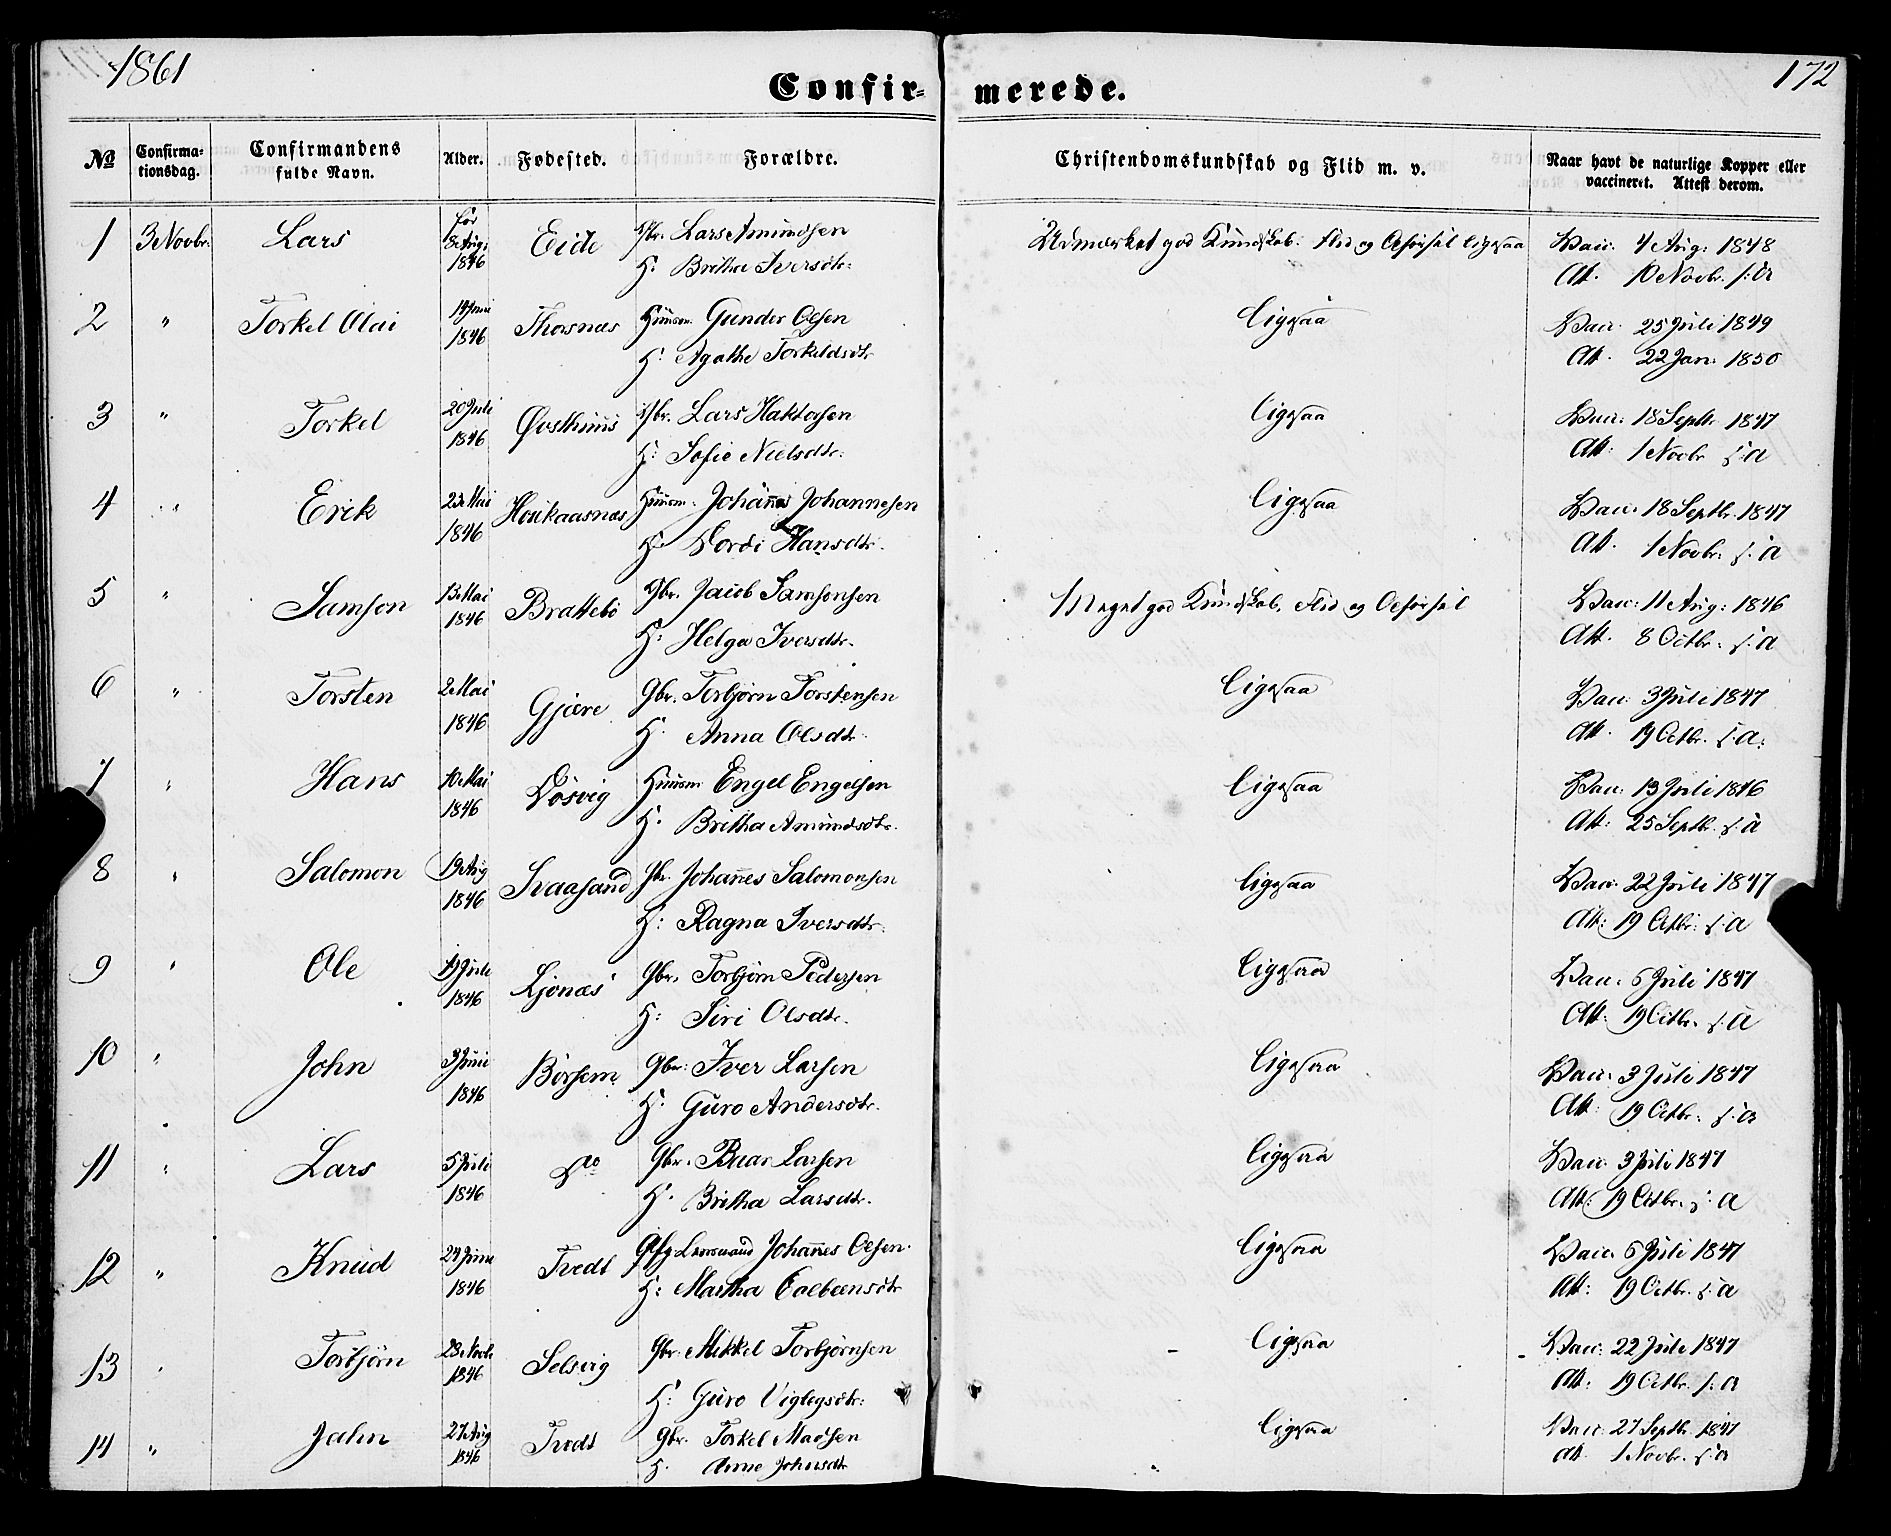 1861
172
Confir- merede.
№ Confirma-tionsdag. Confirmandens fulde Navn. Alder. Fødested. Forældre. Christendomskundskab og Flid m. v. Naar havt de naturlige Kopper eller vaccineret. Attest derom.
1 3 Novbr. Lars 1846 Eide Gbr. Lars Amundsen Udmærket god Kundskab. Flid og Opførsel ligesaa Vacc. 4 Aug: 1848
H: Britha Iversdtr: Att. 10 Novbr. s: a
2 " Torkel Olai 14 Juni Thorsnæs Huusm. Gunder Olsen Ligesaa Vacc. 25 Juli 1849
1846 H: Agathe Torkeldsdtr Att. 22 Jan: 1850
3 " Torkel 20 Juli Gbr. Lars Haktorsen Ligesaa Vacc: 18 Septbr. 1847
1846 H: Sofie Nielsdtr: Att: 1 Novbr s: a
4 " Erik 23 Mai Huusm. Johannes Johannesen Ligesaa Vacc: 18 Septbr. 1847
1846 H: Hansdtr. Att. 1 Novbr. s: a
5 " Samson 13 Mai Brattebø Gbr. Jacob Samsonsen Meget god Kundskab, Flid og Opførsel Vacc: 11 Aug: 1846
1846 H: Helga Iversdtr. Att. 8 Octbr. s: a
6 " Torsten 2 Mai Gjære Gbr. Torbjørn Torstensen Ligesaa Vacc: 3 Juli 1847
1846 H: Anna Olsdtr. Att. 19 Octbr. s: a:
7 " Hans 10 Mai Døsvig Huusm Engel Engelsen Ligesaa Vacc: 13 Juli 1846
1846 H: Britha Amundsdtr. Att: 25 Septbr. s: a
8 " Salomon 19 Aug Svaasand Gbr. Johannes Salomonsen Ligesaa Vacc: 22 Juli 1847
1846 H: Ragna Iversdtr. Att: 19 Octbr: s: a
9 " Ole Juli Ljønæs Gbr. Torbjørn Pedersen Ligesaa Vacc: 6 Juli 1847
1846 H: Siri Olsdtr. Att: 19 Octbr. s: a
10 " John 3 Juni Børsem Gbr: Iver Larsen Ligesaa Vacc: 3 Juli 1847
1846 H: Guro Andersdtr. Att: 19 Octbr. s: a
11 " Lars 5 Juli Do Gbr. Baar Larsen Ligesaa Vacc: 3 Juli 1847
1846 H. Britha Larsdtr. Att: 19 Octbr. s: a
12 " Knud 24 Juni Tvedt Johannes Olsen. Ligesaa Vacc. 6 Juli 1847
1846 H: Martha Att: 19 Octbr. s: a
13 " Torbjørn 23 Selsvig Gbr. Mikkel Torbjørnsen Ligesaa Vacc: 22 Juli 1847
1846 H: Guro Viglegsdtr: Att: 19 Octbr. s: a
14 " John 27 Aug Tvedt Gbr. Torkel Madsen Ligesaa Vacc: 27 Septbr. 1847
1846 H. Anne Johnsdtr Att. 1 Novbr. s: a